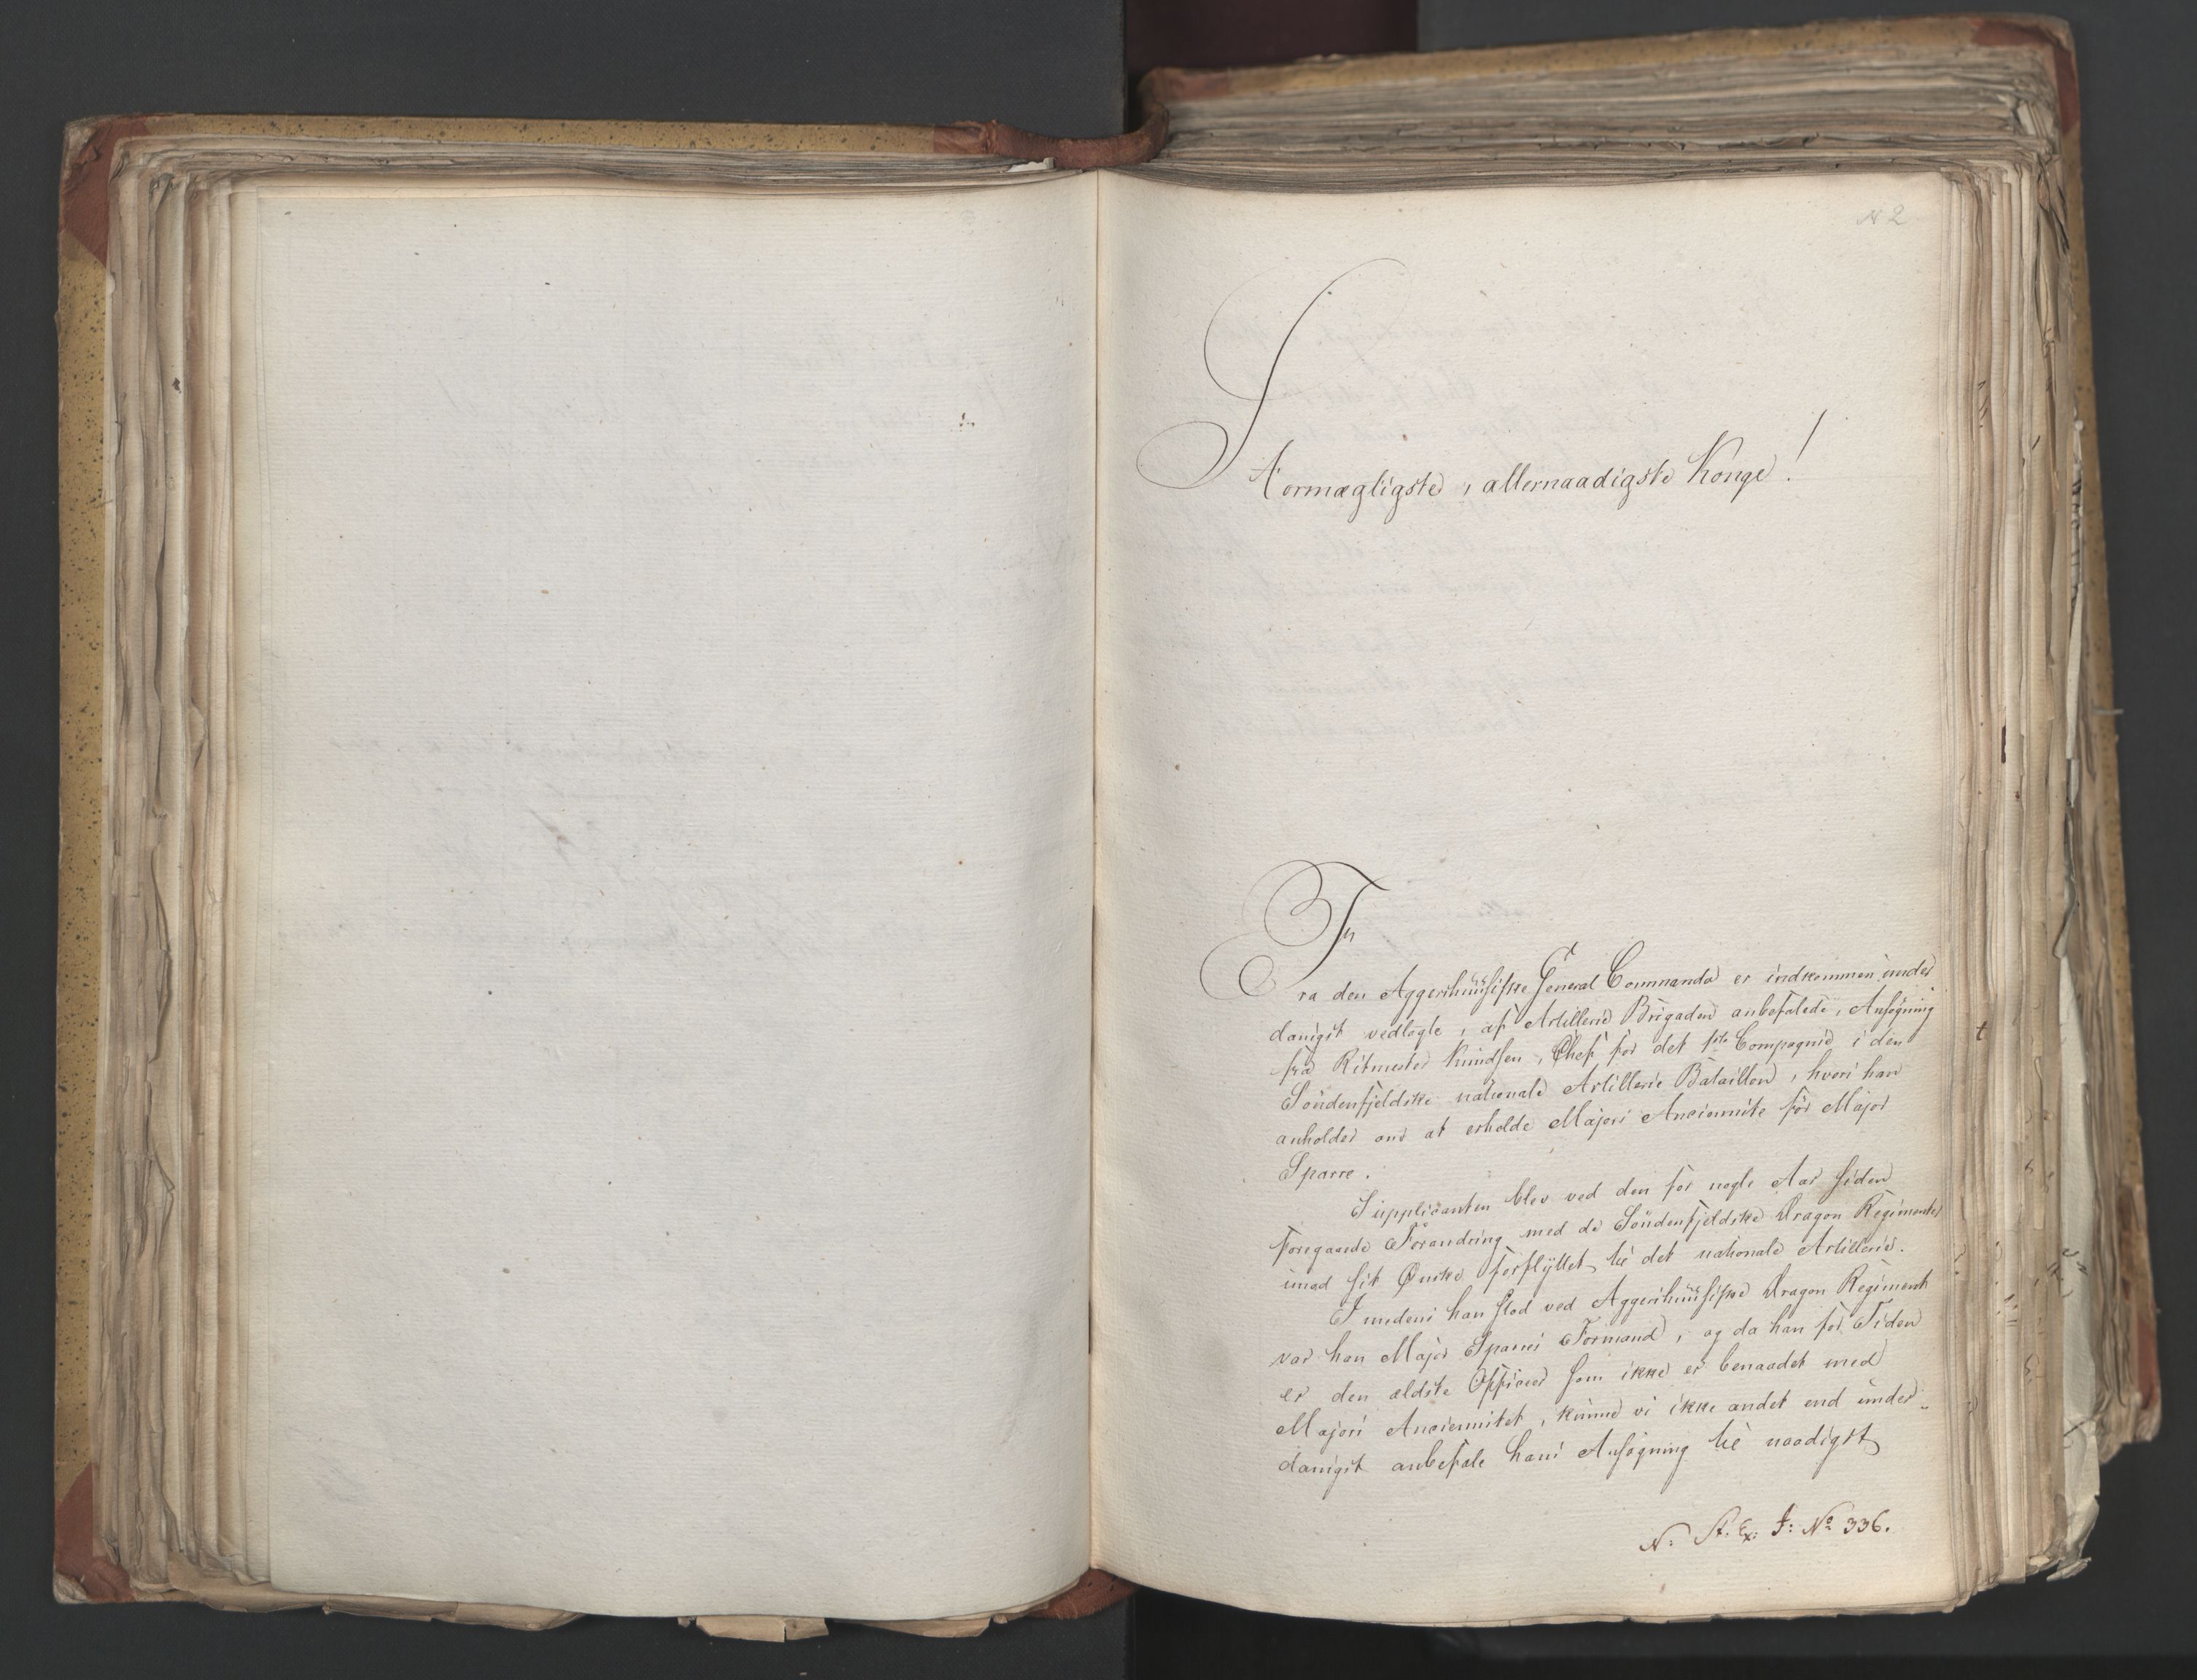 N 2
Stormægtigste, allernaadigste Konge!
Fra den Aggershuusiske General Commando er indkommen under
danigst vedlagte, af Artillerie Brigaden anbefalede, Ansøgning
fra Ritmester Knudsen, Chef for det 1ste Compagnie i den
Søndenfjeldske nationale Artillerie Bataillon, hvori han
anholder om at erholde Majors Anciennite før Major
Sparre.
Supplicanten blev ved den for nogle Aar siden
foregaaede Forandring med de Søndenfjeldske Dragon Regimenter
imod sit Ønske forflyttet til det nationale Artillerie.
Imedens han stod ved Aggershuusiske Dragon Regiment
var han Major Sparres Formand, og da han for Tiden
er den ældste Officeer som ikke er benaadet med
Majors Anciennitet, kunne vi ikke andet end under-
danigst anbefale hans Ansøgning til naadigst
N. St. Ex: J: No 336.